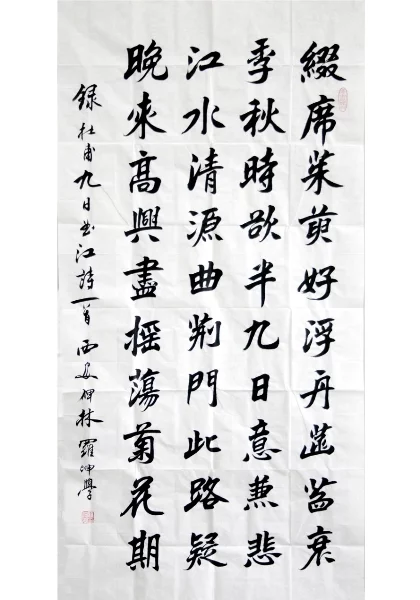 綴席茱萸好浮舟菡萏衰
季秋時欲半九日意兼悲
江水清源曲荊門此路疑
晚來高興盡摇蕩菊花期
録杜甫九日曲江詩一首 西安碑林 羅坤學